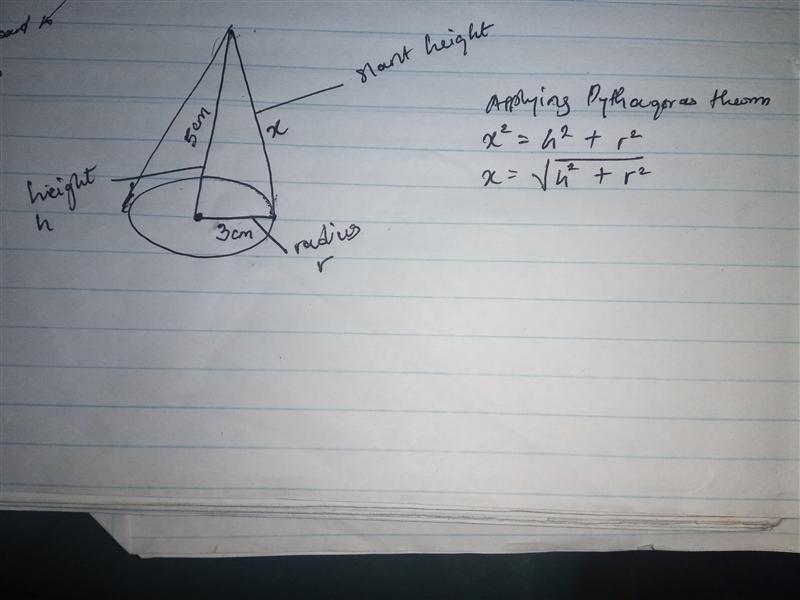 slant height
5cm
x
height
h
3cm
radius
r
Applying Pythagoras theom
x² = h² + r²
x = √h² + r²